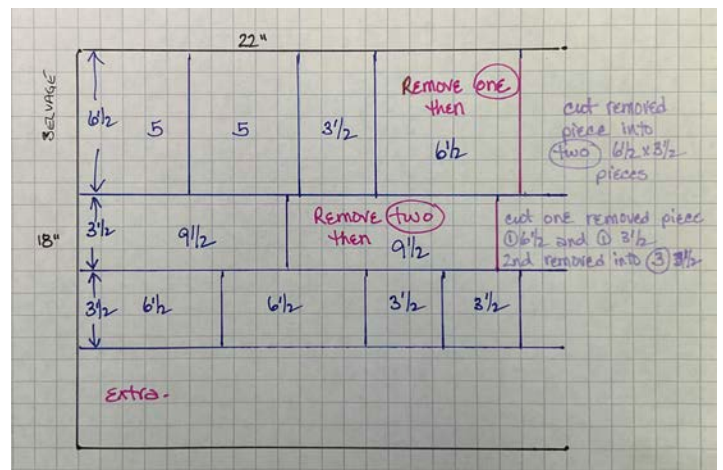 22"
SELVAGE
6½
5
5
3½
Remove one
then
6½
cut removed
piece into
two 6½ x 3½
pieces
18"
3½
9½
Remove two
then
9½
cut one removed piece
① 6½ and ① 3½
2nd removed into ③ 3½
3½
6½
6½
3½
3½
Extra.